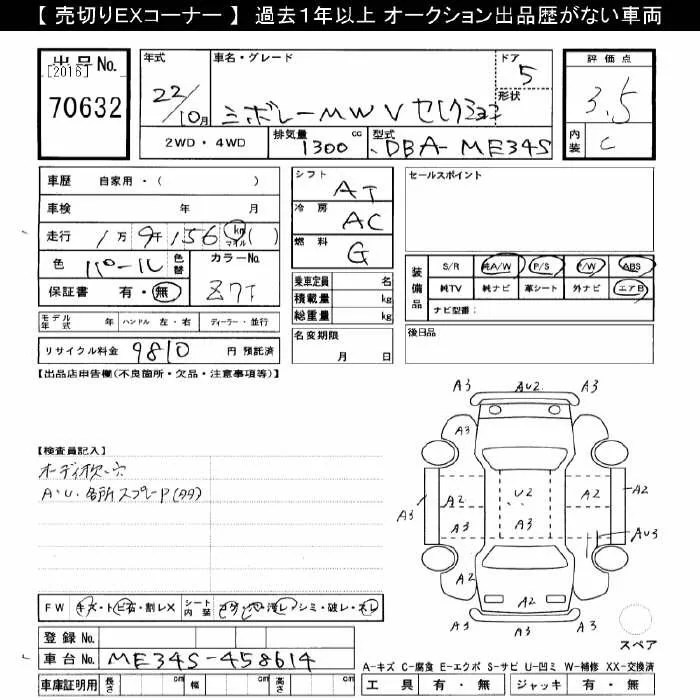 【 売切りEXコーナー 】 過去1年以上 オークション出品歴がない車両
出品No.
[2016]
70632
年式
22/10月
車名・グレード
シボレーMW Vセレクション
ドア
5
形状
評価点
3.5
内装
C
2WD・4WD
排気量
1300
cc
型式
DBA-ME34S
車歴
自家用・( )
車検
年 月
走行
1万9千156
km
マイル
( )
色
パール
色替
カラーNo.
Z7T
保証書
有・無
モデル年式
年
ハンドル
左・右
ディーラー・並行
リサイクル料金
9810
円 預託済
シフト
AT
冷房
AC
燃料
G
乗車定員
名
積載量
kg
総重量
kg
名変期限
月 日
セールスポイント
装備品
S/R
純A/W
P/S
P/W
ABS
純TV
純ナビ
革シート
外ナビ
エアB
ナビ型番:
後日品
【出品店申告欄(不良箇所・欠品・注意事項等)】
【検査員記入】
A・U 各所スプレーP(タタ)
FW
キズ・トビ石・割レX
シート内装
コゲ・穴・汚レ・シミ・破レ・スレ
登録No.
車台No.
ME34S-458614
車庫証明用
長さ
cm
幅
cm
高さ
cm
A3
AU2
A3
A3
A3
A3
A2
U2
A2
A3
A3
A3
AU3
A2
A2
A2
A3
A2
A3
スペア
A-キズ C-腐食 E-エクボ S-サビ U-凹ミ W-補修 XX-交換済
工具
有・無
ジャッキ
有・無